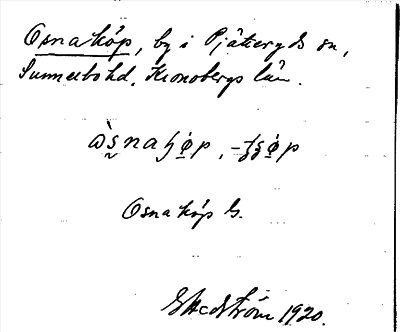 Osnaköp, by i Pjätteryds sn,
Sunnerbo hd, Kronobergs län.
Osnaköp G.
G Hedström 1920.